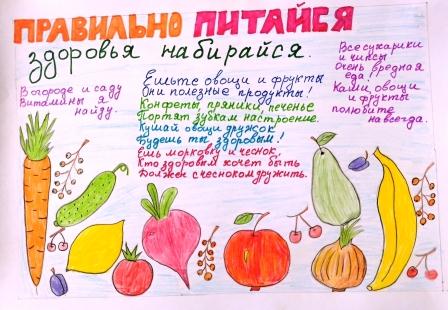 ПРАВИЛЬНО ПИТАЙСЯ
здоровья набирайся.
В огороде и саду
Витамины я
найду.
Ешьте овощи и фрукты
Они полезные продукты!
Конфеты, пряники, печенье
Портят зубкам настроение.
Кушай овощи дружок
Будешь ты здоровым!
Ешь морковку и чеснок,
Кто здоровым хочет быть
Должен с чесноком дружить.
Все сухарики
и чипсы
Очень вредная
еда!!
Каши, овощи
и фрукты
полюбите
навсегда.